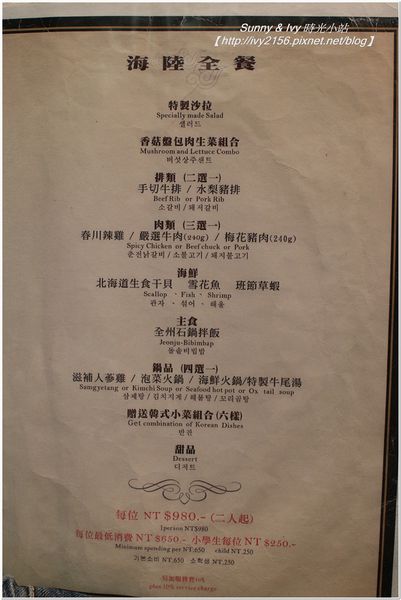 Sunny & Ivy 時光小站
【http://ivy2156.pixnet.net/blog】
海陸全餐
特製沙拉
Specially made Salad
샐러드
香菇盤包肉生菜組合
Mushroom and Lettuce Combo
버섯상추쌈트
排類 (二選一)
手切牛排 / 水梨豬排
Beef Rib or Pork Rib
소갈비 / 돼지갈비
肉類 (三選一)
春川辣雞 / 嚴選牛肉(240g) / 梅花豬肉(240g)
Spicy Chicken or Beef chuck or Pork
춘천닭갈비 / 소불고기 / 돼지불고기
海鮮
北海道生食干貝 雪花魚 班節草蝦
Scallop 、 Fish 、 Shrimp
관자 、 섬어 、 해율
主食
全州石鍋拌飯
Jeonju-Bibimbap
돌솥비빔밥
鍋品 (四選一)
滋補人蔘雞 / 泡菜火鍋 / 海鮮火鍋/特製牛尾湯
Samgyetang or Kimchi Soup or Seafood hot pot or Ox tail soup
삼계탕 / 김치지게 / 해물탕 / 꼬리곰탕
贈送韓式小菜組合(六樣)
Get combination of Korean Dishes
반찬
甜品
Dessert
디저트
每位 NT $980.- (二人起)
1person NT$980
每位最低消費 NT $650.- 小學生每位 NT $250.-
Minimum spending per NT.650 child NT.250
기본소비 NT,650 소학생 NT,250
另加服務費10%
plus 10% service charge